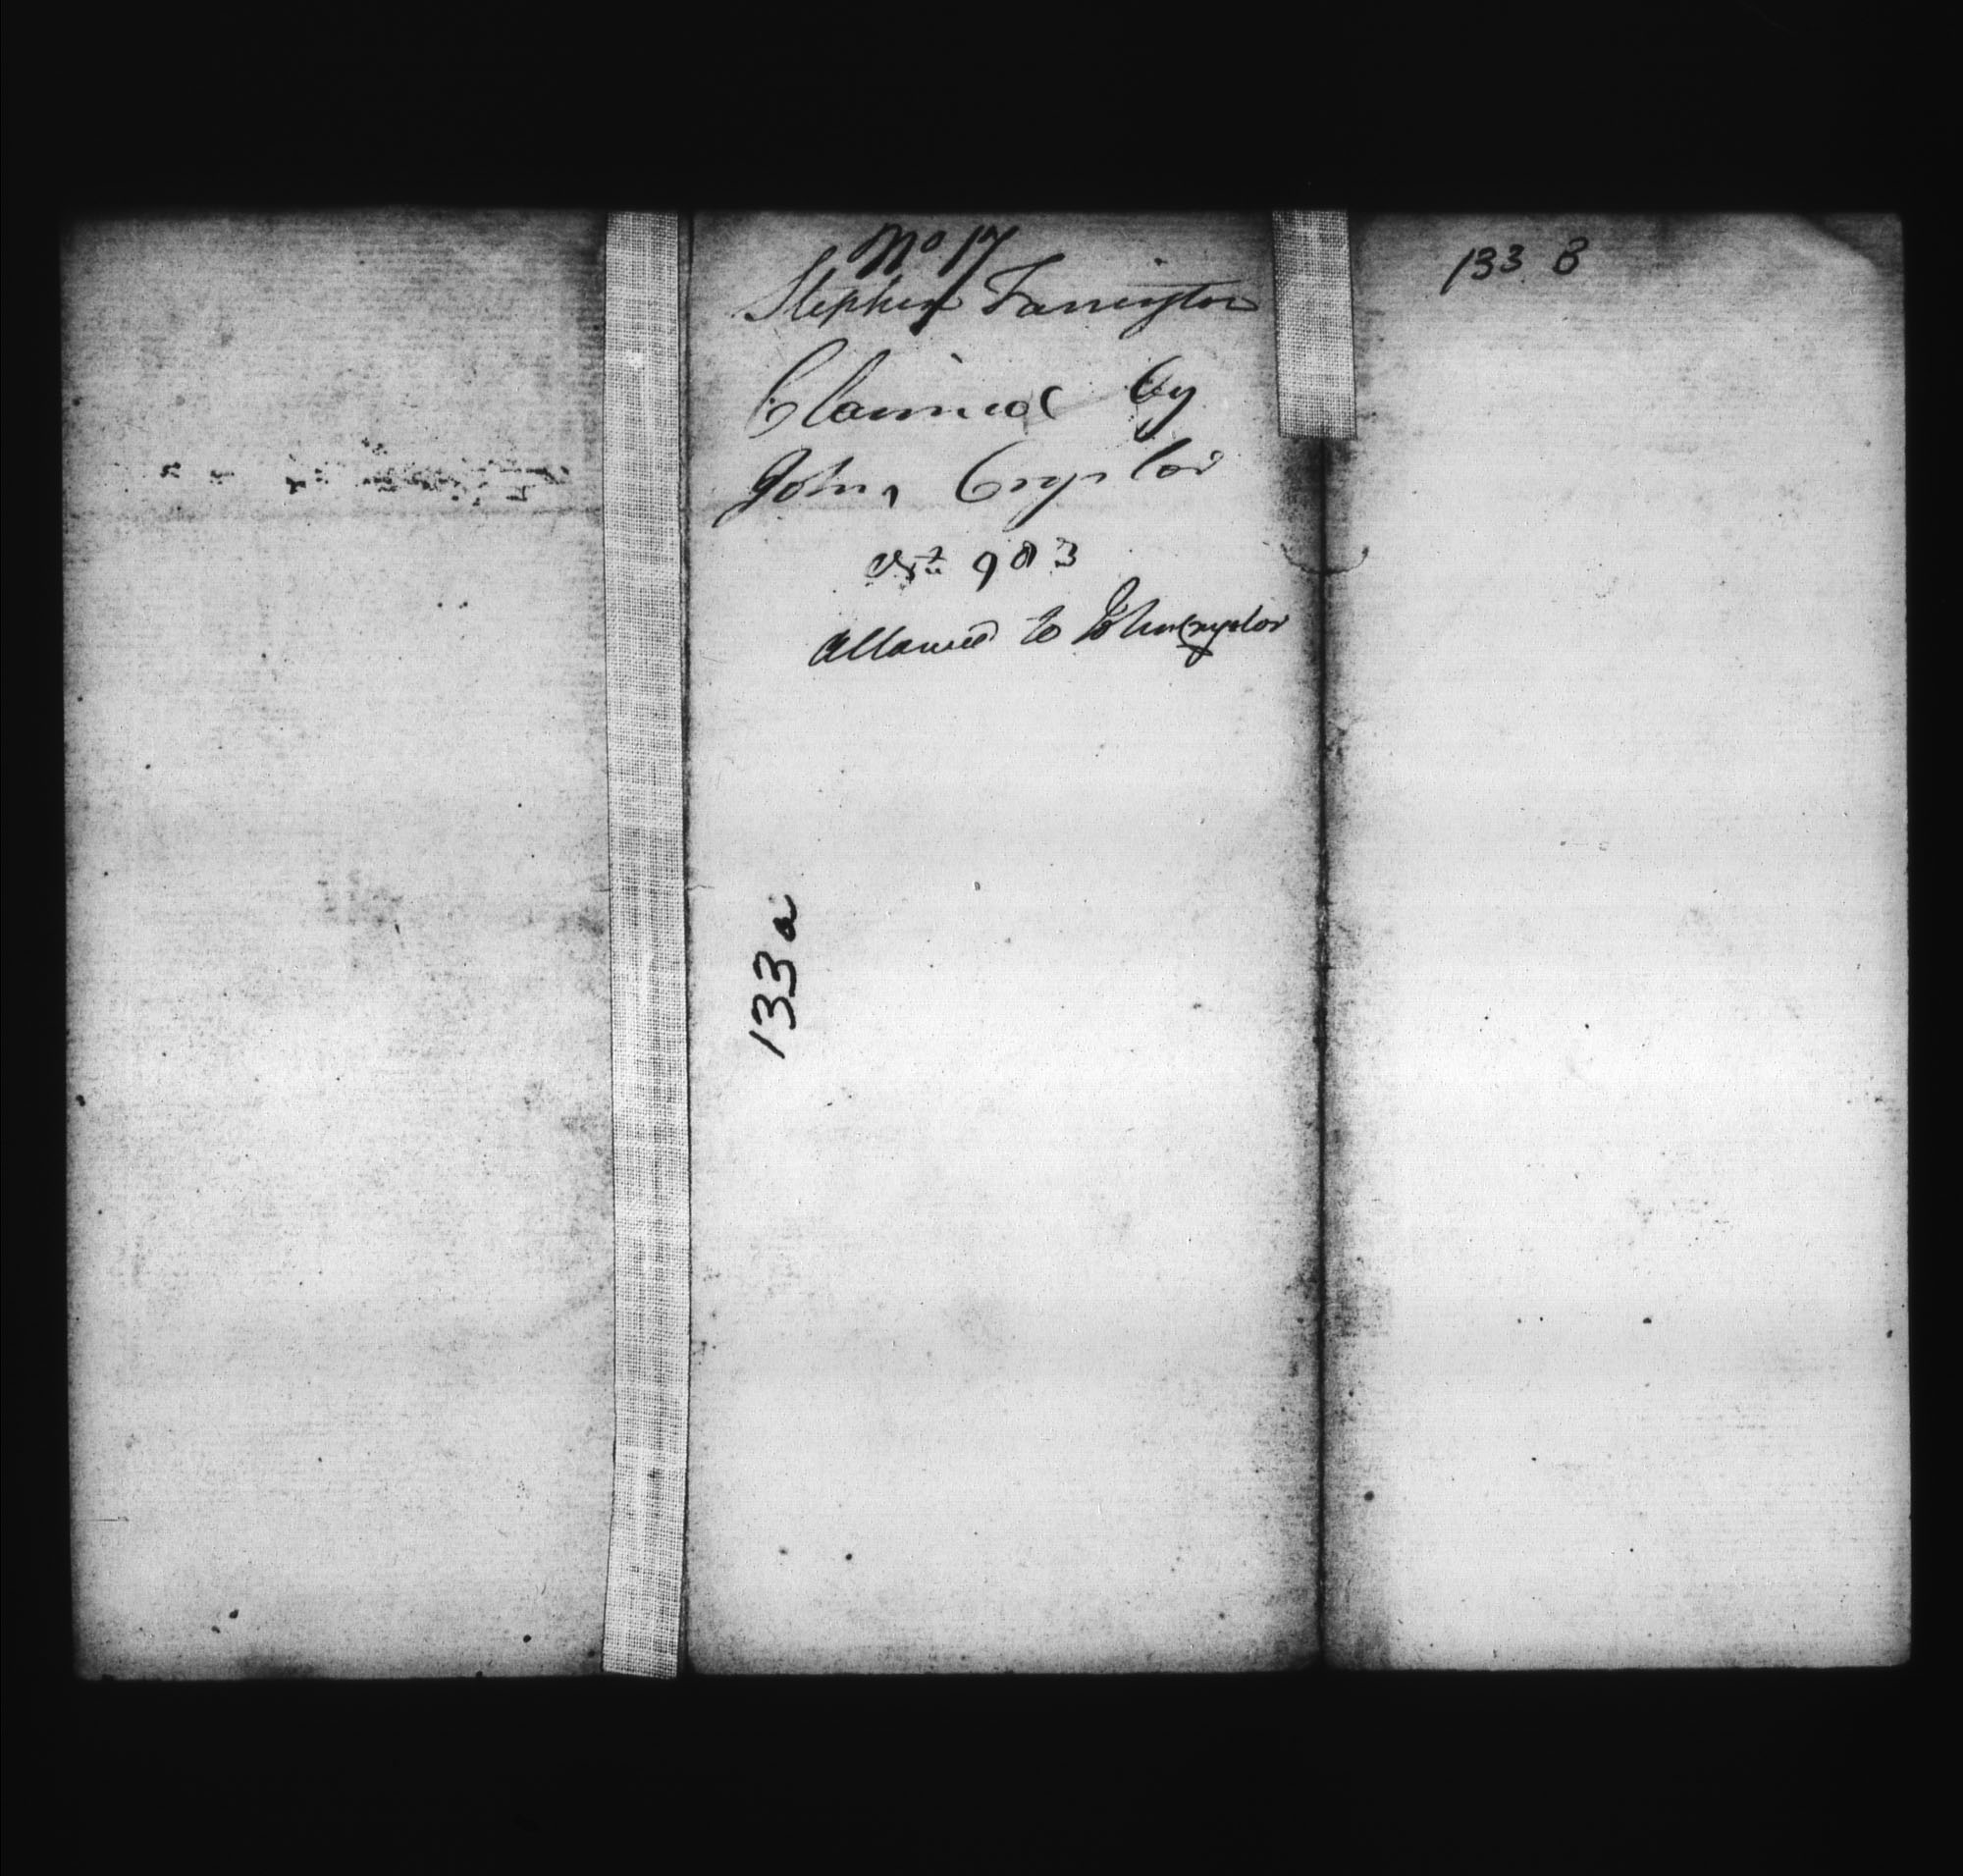 No 17
Stephen Farrington
Claimed by
John Crysler
No 983
Allowed to John Crysler
133 a
133 B